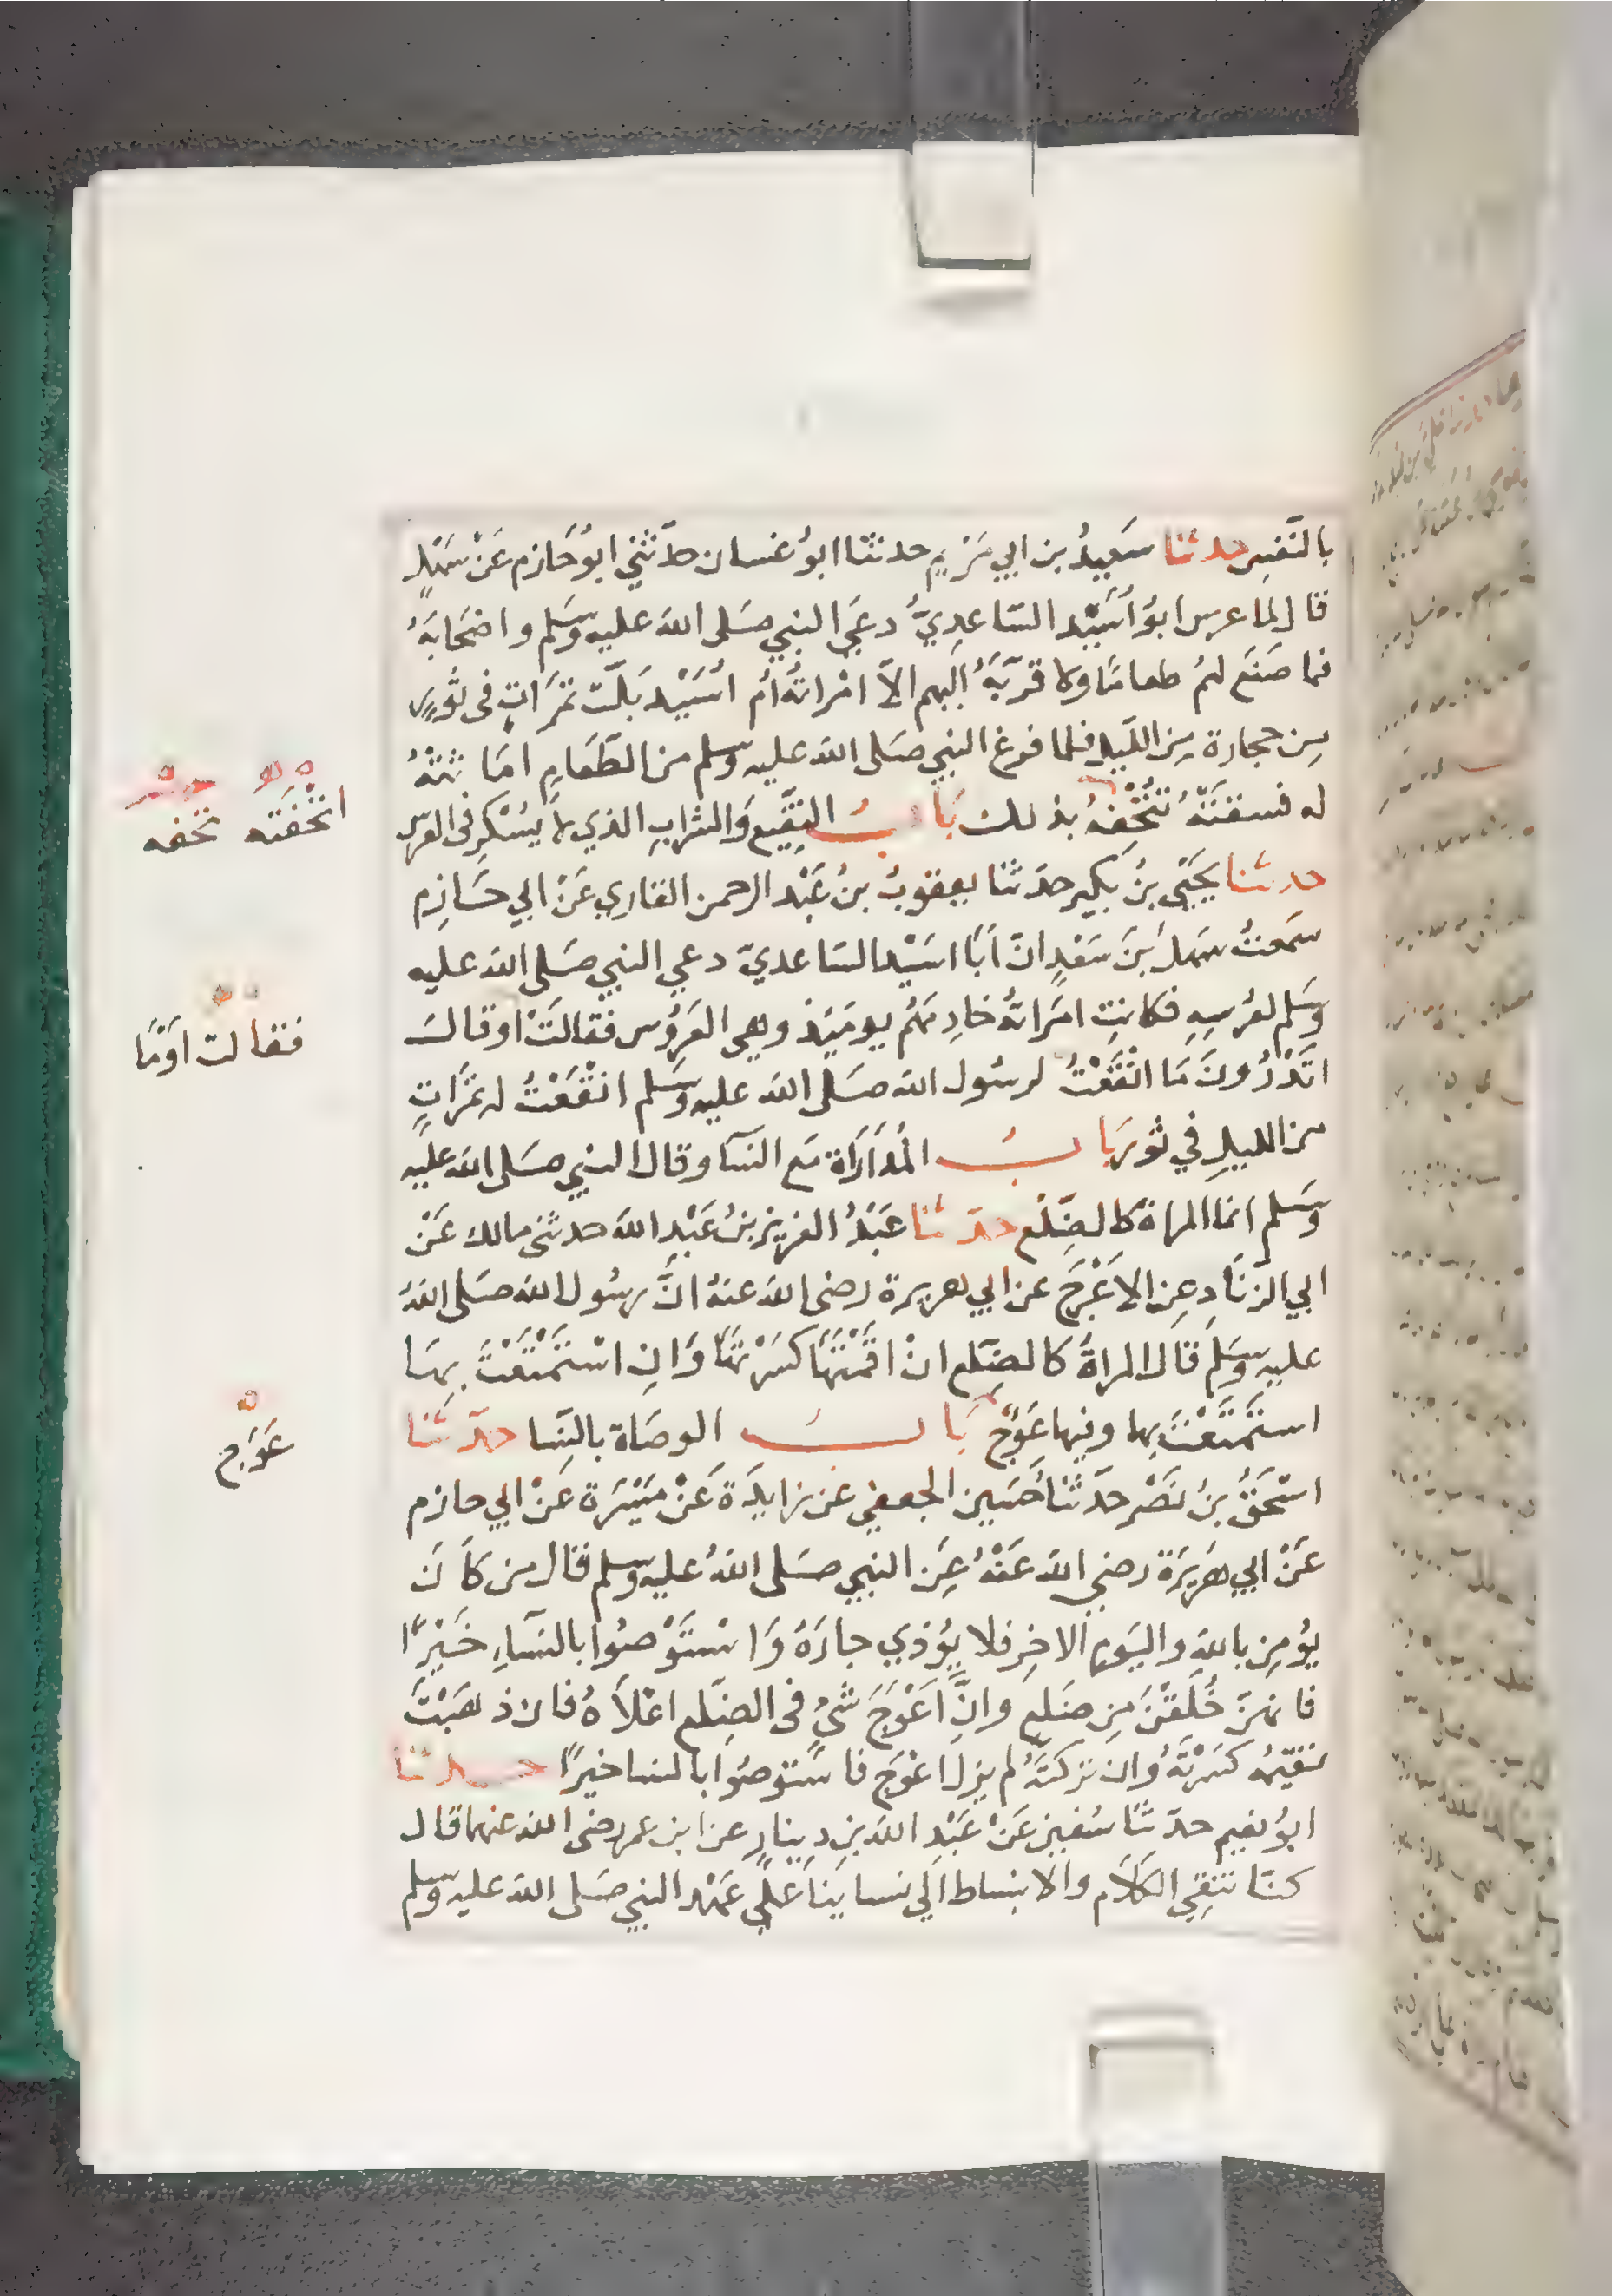 بالنَّفسِ حدثنا سَعِيدُ بن ابي مَرْيمٍ حدثنا ابوُ غسان حدَّثني ابوُ حَازم عَنْ سَهْلٍ
قال لما عرس ابوُ أُسَيْد السَّاعِدِيُّ دعَي النبي صَلى الله عليه وسَلم واصْحَابَهُ
فما صَنَع لهُم طعامًا وَلا قَرَّبَهُ اليهم الاَّ امْرَاتهُ أم اُسَيْد بَلَّت تَمَرَاتٍ فى تَوْرٍ
مِن حجارة مِن اللَّيل فلما فرغ النبي صَلى الله عليه وسلم من الطَّعَامِ امَاثَتْهُ
له فسقَتْهُ تُتْحِفُهُ بذلك بَابُ النَّقِيعِ وَالشرَابِ الذي لاَ يُسْكِر فى العرس
حدثنا يَحْيَي بنُ بكير حدَثنا يعقوبُ بنُ عَبْد الرحمن القاري عَنْ ابي حَازِم
سَمعتُ سَهلَ بنَ سَعْدٍ انَّ اَبَا اسَيْد السَاعديّ دعي النبي صَلى الله عليه
وسَلم لعُرسِهِ فكانتِ امرَاتُهُ خادِمَهُم يومَيَذ وهي العَرُوس فقالَتْ اوقالَ
اتَدْرُونَ مَا انْقَعْتُ لرسُول الله صَلى الله عليه وسَلم انْقَعْتُ له تمَرَاتٍ
من الليلِ في تورٍ بَابُ المُدَارَاة مَع النسَآ وقال النبي صَلى الله عليَه
وسَلم انما المراة كالضِّلَع حدّثنا عَبْدُ العزيز بنُ عَبْدِ الله حدثني مالك عَنْ
ابي الزنَادِ عِن الاَعْرَج عن ابي هريرة رضى الله عنهُ انَّ رسُول الله صَلى اللهُ
عليه وسَلم قال المراةُ كالضِّلَع انْ اقمْتَهَا كسَرْتَهَا وَانِ اسْتَمْتَعْتَ بِهَا
استَمْتَعْتَ بِها وفيها عَوَجٌ بَابُ الوصَاة بالنِّسَا حدّثنا
اسْحَقُ بنُ نَصْر حدَّثنا حُسَين الجعفي عَن زايدَة عَنْ مَيْسَرة عَنْ ابي حازم
عَنْ ابي هُرَيرَة رضي الله عَنْهُ عِن النبي صَلى اللهُ عليه وسلم قال من كاَنَ
يُومِن بالله واليَومِ الاخِر فلا يُؤذي جارَهُ وَاسْتَوْصُوا بالنسَآءِ خَيْرًا
فانهنّ خُلِقْنَ مِن ضلَعٍ وانَّ اَعْوَجَ شَيْءٍ فى الضِّلَع اعْلاَهُ فان ذهَبْتَ
تُقيْمُهُ كسَرْتَهُ وان تركتَهُ لم يزل اعْوَجَ فاسْتَوصُوا بالنسا خيرًا حدثنا
ابوُ نعيم حدّثنا سُفين عَنْ عَبْدِ الله بنِ دِينارٍ عن ابن عمر رضى الله عنهما قال
كنَّا نتقِي الكَلاَم والانبساط الَي نسايَنا عَلي عَهْد النبي صَلى الله عليه وسلم
اتحْفَته تحفه
فقالت اوَمَا
عَوَج